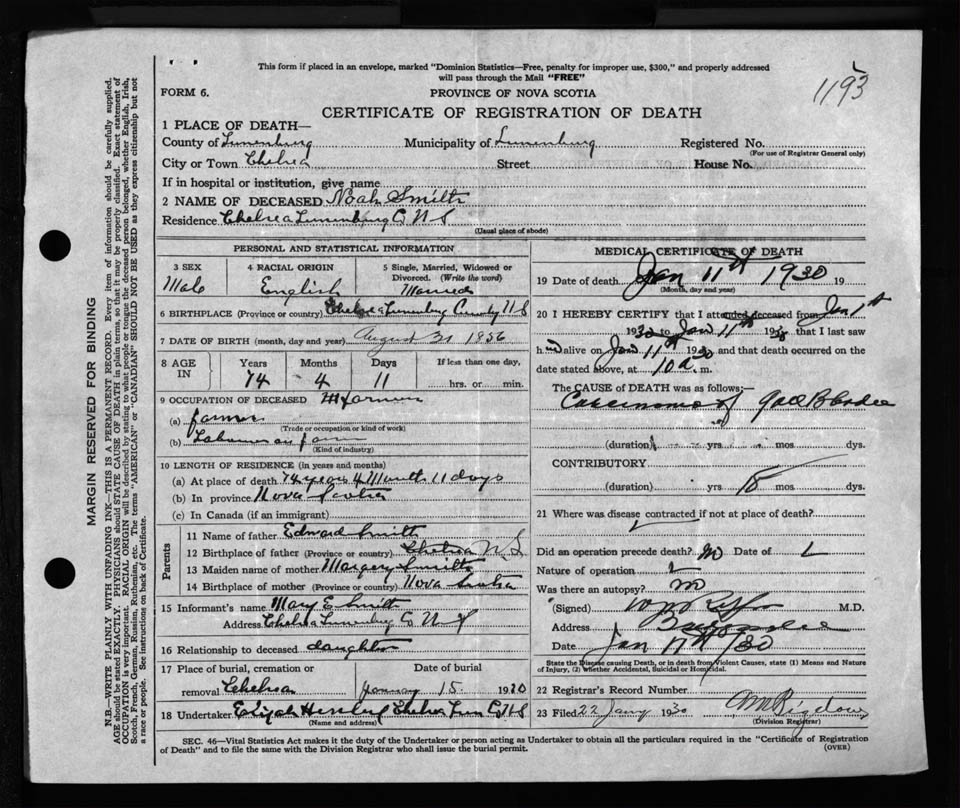 This form if placed in an envelope, marked "Dominion Statistics—Free, penalty for improper use, $300," and properly addressed
will pass through the Mail "FREE"
1193
FORM 6. PROVINCE OF NOVA SCOTIA
CERTIFICATE OF REGISTRATION OF DEATH
1 PLACE OF DEATH—
County of Lunenburg Municipality of Lunenburg Registered No.
(For use of Registrar General only)
City or Town Chelsea Street House No.
If in hospital or institution, give name
2 NAME OF DECEASED Noah Smith
Residence Chelsea Lunenburg Co N S
(Usual place of abode)
PERSONAL AND STATISTICAL INFORMATION
3 SEX 4 RACIAL ORIGIN 5 Single, Married, Widowed or Divorced. (Write the word)
Male English Married
6 BIRTHPLACE (Province or country) Chelsea Lunenburg County N S
7 DATE OF BIRTH (month, day and year) August 31 1856
8 AGE IN Years Months Days If less than one day,
74 4 11 hrs. or min.
9 OCCUPATION OF DECEASED farmer
(a) farmer
(Trade or occupation or kind of work)
(b) Labourer on farm
(Kind of industry)
10 LENGTH OF RESIDENCE (in years and months)
(a) At place of death 74 years 4 Month 11 days
(b) In province Nova Scotia
(c) In Canada (if an immigrant)
Parents
11 Name of father Edward Smith
12 Birthplace of father (Province or country) Chelsea N S
13 Maiden name of mother Margery Smith
14 Birthplace of mother (Province or country) Nova Scotia
15 Informant's name Mary E Smith
Address Chelsea Lunenburg Co N S
16 Relationship to deceased daughter
17 Place of burial, cremation or Date of burial
removal Chelsea January 15 1930
18 Undertaker Elijah Chelsea Lun Co N S
(Name and address)
MEDICAL CERTIFICATE OF DEATH
19 Date of death Jan 11th 1930 19
(Month, day and year)
20 I HEREBY CERTIFY that I attended deceased from Jan 1st
1930 to Jan 11th 1930 that I last saw
h alive on Jan 11th 1930 and that death occurred on the
date stated above, at 10 a. m.
The CAUSE of DEATH was as follows:—
Carcinoma of Gall Bladder
(duration) yrs. mos. dys.
CONTRIBUTORY
(duration) yrs. mos. dys.
21 Where was disease contracted if not at place of death?
Did an operation precede death? no Date of
Nature of operation
Was there an autopsy? no
(Signed) M.D.
Address
Date Jan 17th 1930
State the Disease causing Death, or in death from Violent Causes, state (1) Means and Nature
of Injury, (2) whether Accidental, Suicidal or Homicidal.
22 Registrar's Record Number
23 Filed 22 Jany 1930 Bigelow
(Division Registrar)
SEC. 46—Vital Statistics Act makes it the duty of the Undertaker or person acting as Undertaker to obtain all the particulars required in the "Certificate of Registration
of Death" and to file the same with the Division Registrar who shall issue the burial permit.
(OVER)
MARGIN RESERVED FOR BINDING
N.B.—WRITE PLAINLY WITH UNFADING INK—THIS IS A PERMANENT RECORD. Every item of information should be carefully supplied.
AGE should be stated EXACTLY. PHYSICIANS should STATE CAUSE OF DEATH in plain terms, so that it may be properly classified. Exact statement of
OCCUPATION is very important. RACIAL ORIGIN will be described by stating to what people or tongue the deceased person belonged, whether English, Irish,
Scotch, French, German, Russian, Ruthenian, etc. The terms "AMERICAN" or "CANADIAN" SHOULD NOT BE USED as they express citizenship but not
a race or people. See instructions on back of Certificate.